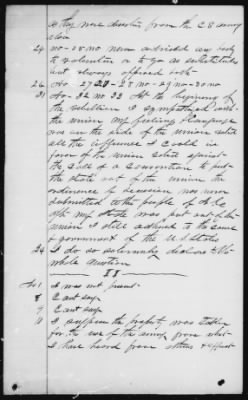 as they were deserters from the C S army
24 no - 25 no never advised any body
to volunteer or to go as substitutes
but always opposed both
26 No 27 28 no 29 no 30 no
31 No 32 no 33 At the beginning of
the rebellion I sympathized with
the union my feeling & language
was on the side of the union exerted
all the influence I could in
favor of the union voted against
the Call of a Convention to put
the state out of the union the
ordinance of Secession was never
submitted to the people of N. C.
after my State was put out of the
union I still adhered to the same
& government of the U S States
34 I do so solemnly declare
whole question
II
1 I was not present
8 Cant say
9 Cant say
11 I suppose the property was taken
for the use of the army from what
I have heard from others